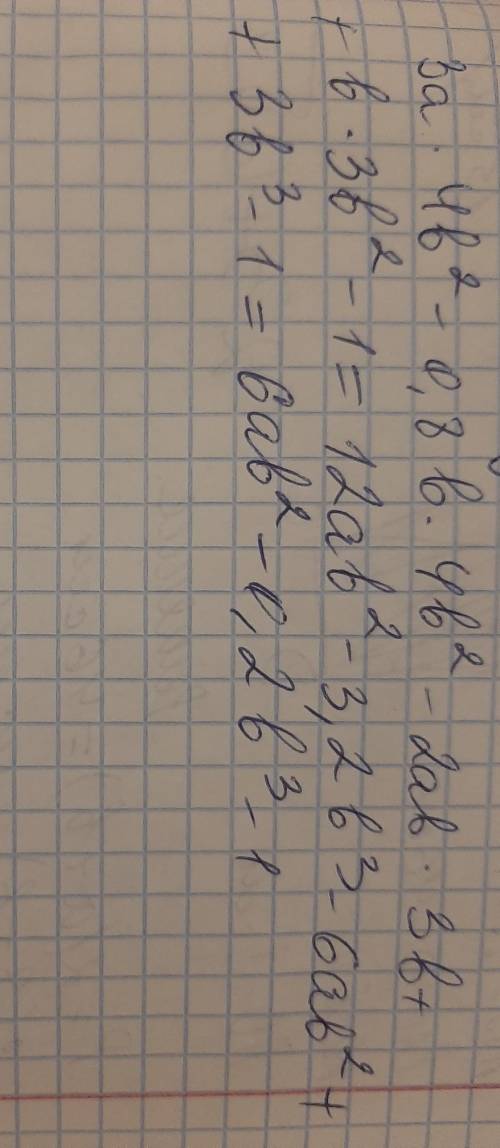 3a · 4b² - 0,8b · 4b² - 2ab · 3b +
+ b · 3b² - 1 = 12ab² - 3,2b³ - 6ab² +
+ 3b³ - 1 = 6ab² - 0,2b³ - 1